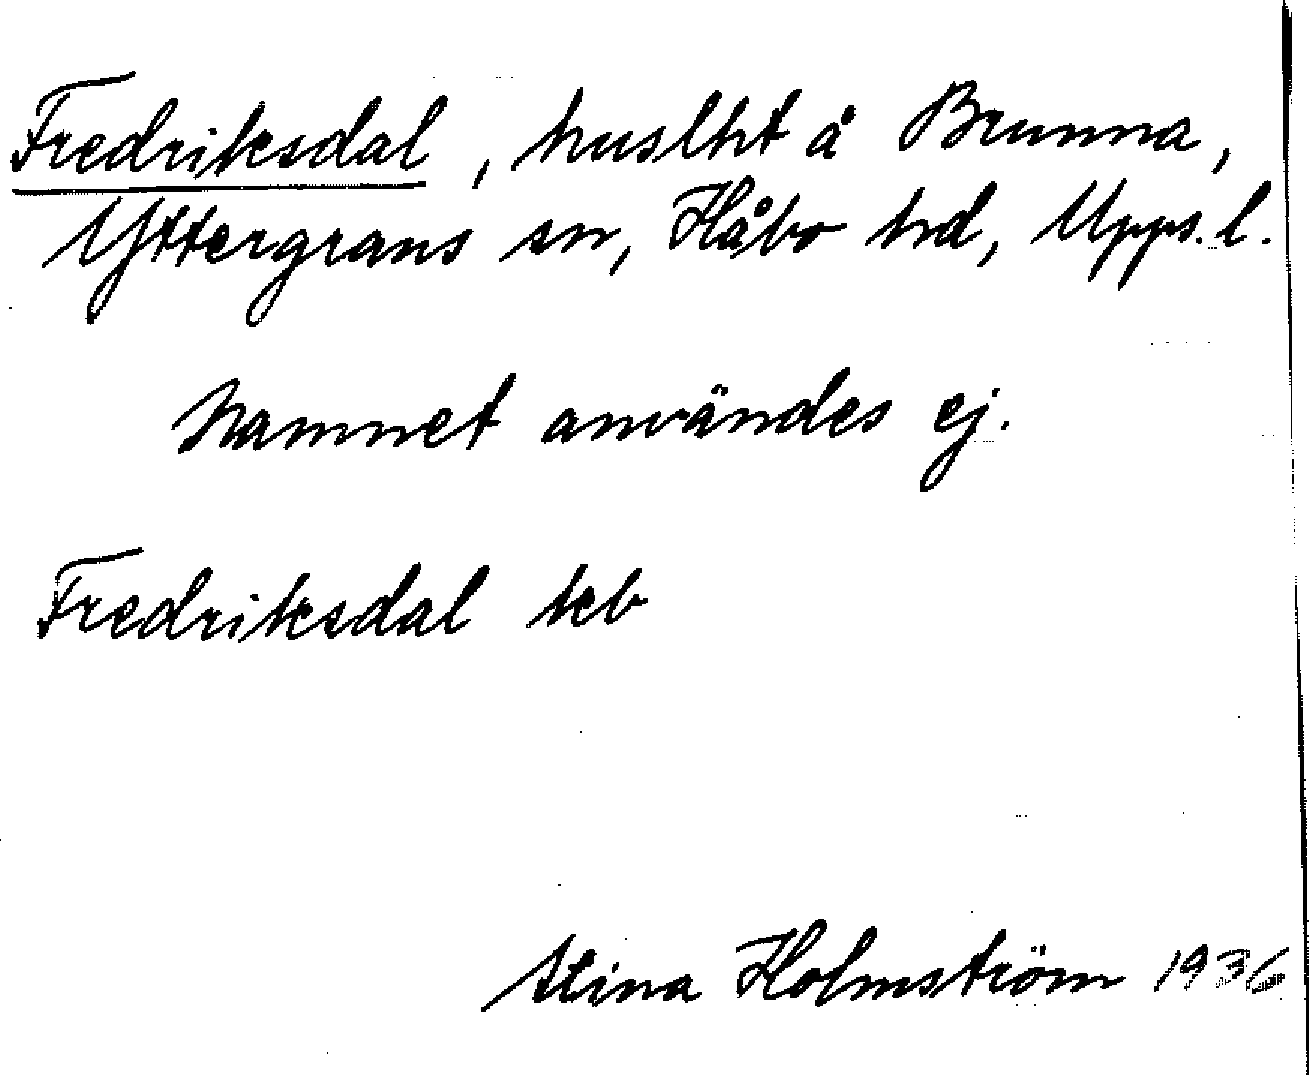 Fredriksdal, huslht å Brunna,
Yttergrans sn, Håbo hd, Upps. l.
Namnet användes ej.
Fredriksdal kb
Stina Holmström 1936